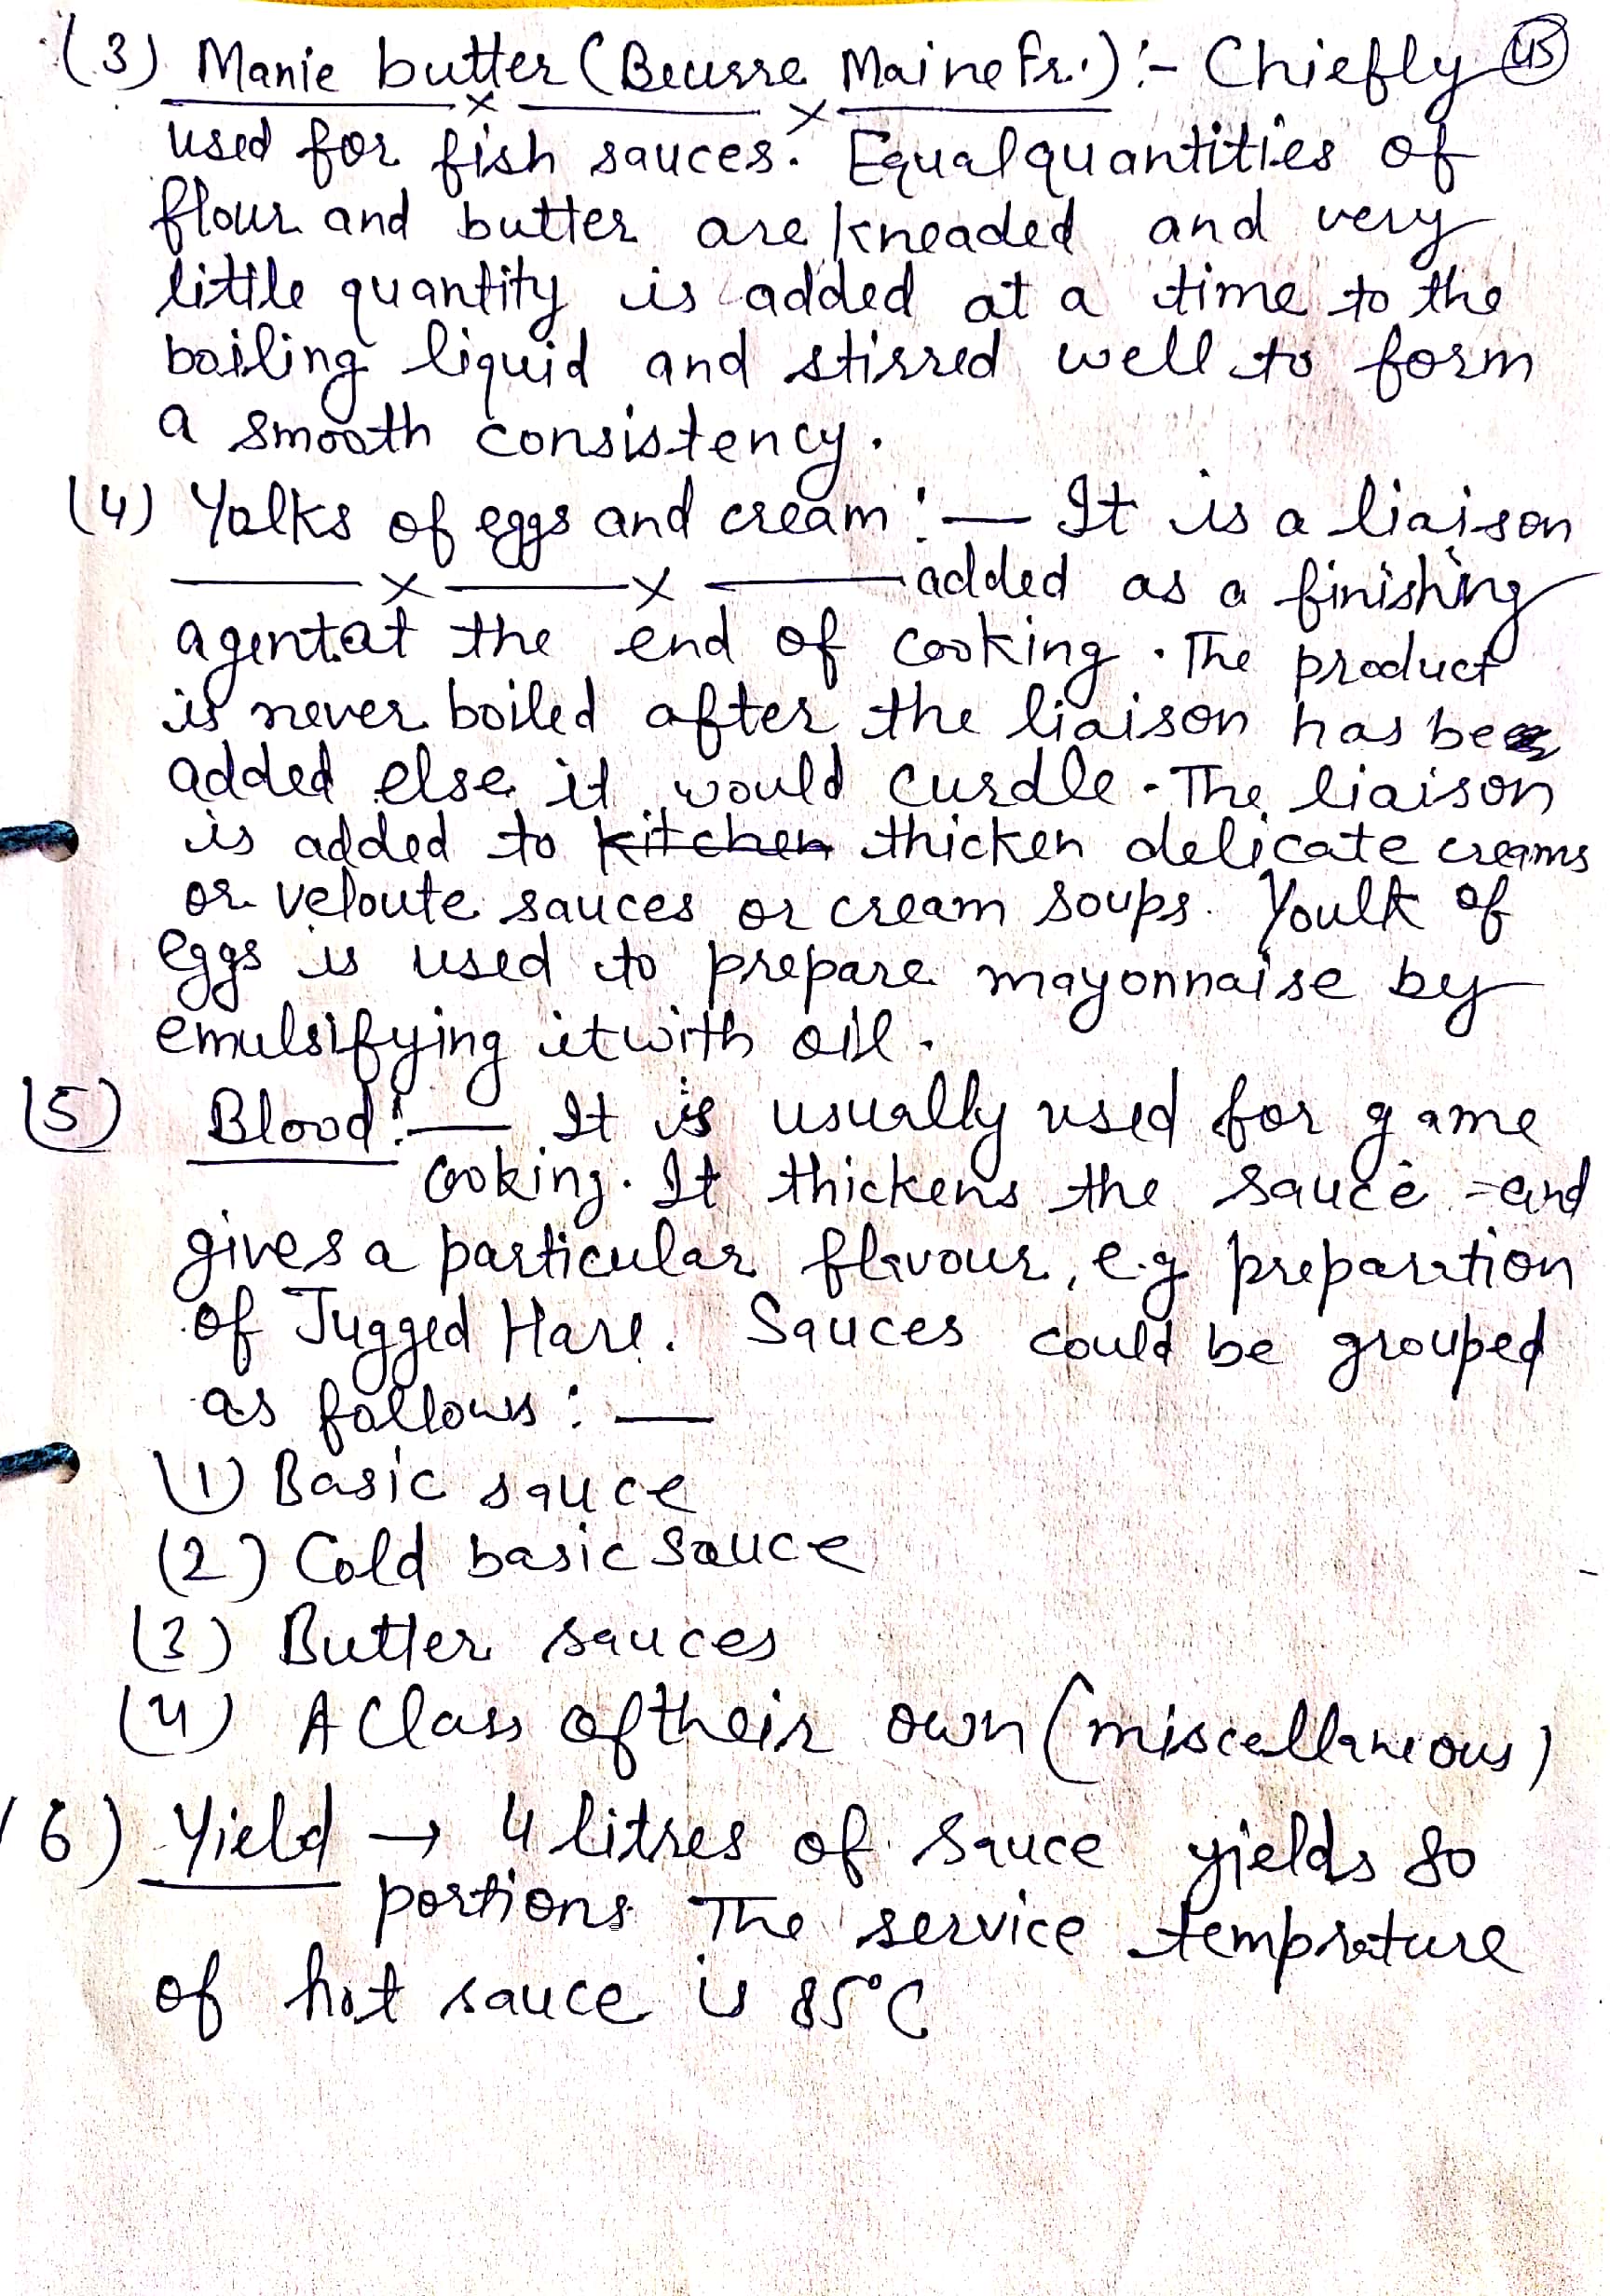 (3) Manie butter (Beurre Maine Fr.) :- Chiefly 45
used for fish sauces. Equal quantities of
flour and butter are kneaded and very
little quantity is added at a time to the
boiling liquid and stirred well to form
a smooth consistency.
(4) Yolks of eggs and cream :— It is a liaison
added as a finishing
agent at the end of cooking. The product
is never boiled after the liaison has been
added else it would curdle. The liaison
is added to kitchen thicken delicate creams
or veloute sauces or cream soups. Youlk of
eggs is used to prepare mayonnaise by
emulsifying it with oil.
(5) Blood :— It is usually used for game
cooking. It thickens the sauce and
gives a particular flavour, e.g preparation
of Jugged Hare. Sauces could be grouped
as follows :—
(1) Basic sauce
(2) Cold basic Sauce
(3) Butter sauces
(4) A Class of their own (miscellaneous)
(6) Yield → 4 litres of sauce yields 80
portions. The service temprature
of hot sauce is 85°C